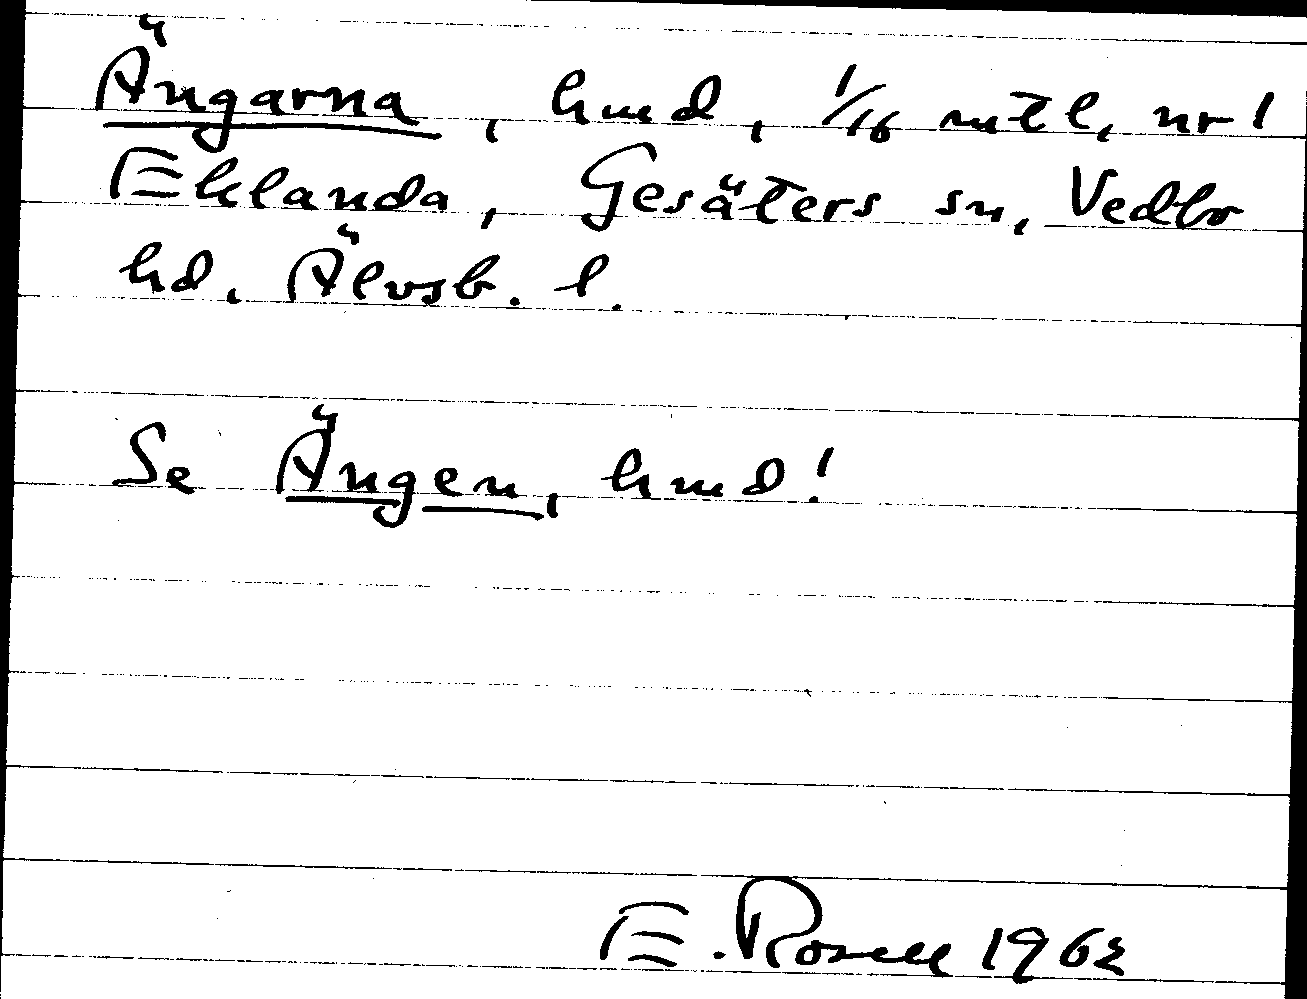 Ängarna, hmd, 1/16 mtl, nr 1
Eklanda, Gesäters sn, Vedbo
hd. Älvsb. l.
Se Ängen, hmd!
E. Rosell 1962